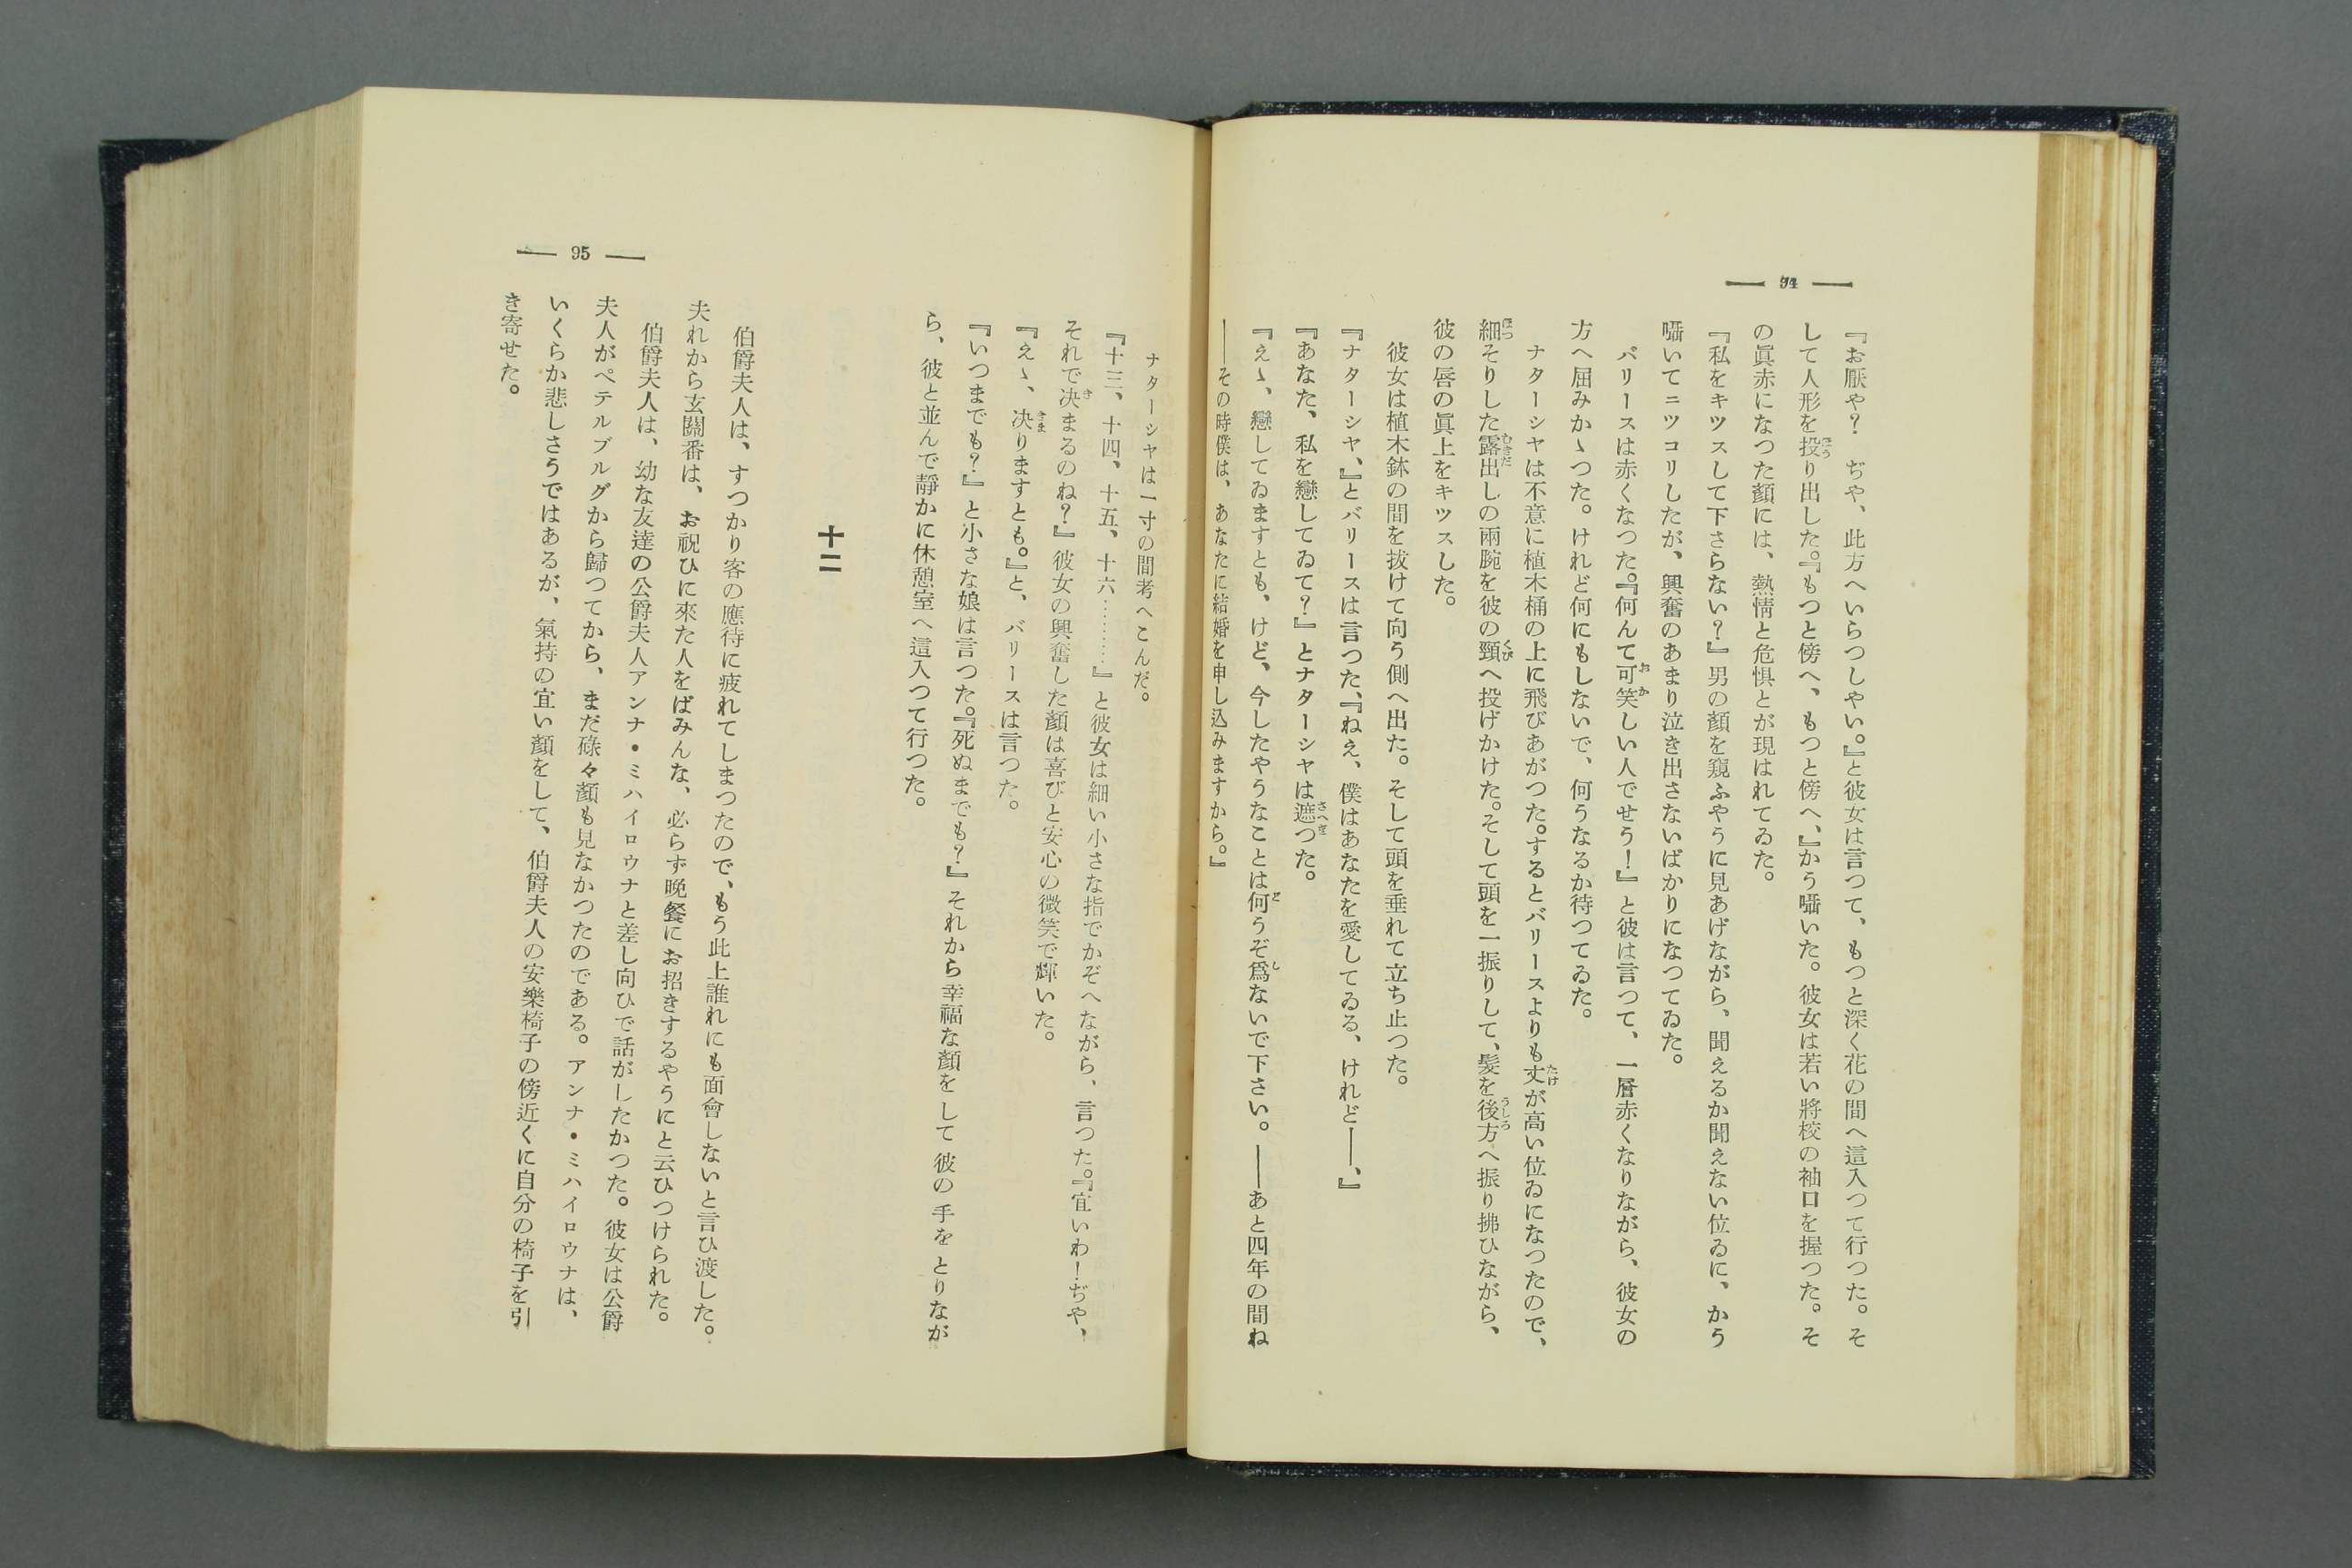 — 94 —
『お厭や？　ぢや、此方へいらつしやい。』と彼女は言つて、もつと深く花の間へ這入つて行つた。そ
して人形を投り出した。『もつと傍へ、もつと傍へ、』かう囁いた。彼女は若い將校の袖口を握つた。そ
の眞赤になつた顏には、熱情と危惧とが現はれてゐた。
『私をキツスして下さらない？』男の顏を窺ふやうに見あげながら、聞えるか聞えない位ゐに、かう
囁いてニツコリしたが、興奮のあまり泣き出さないばかりになつてゐた。
バリースは赤くなつた。『何んて可笑しい人でせう！』と彼は言つて、一層赤くなりながら、彼女の
方へ屈みかゝつた。けれど何にもしないで、何うなるか待つてゐた。
ナターシヤは不意に植木桶の上に飛びあがつた。するとバリースよりも丈が高い位ゐになつたので、
細そりした露出しの兩腕を彼の頸へ投げかけた。そして頭を一振りして、髪を後方へ振り拂ひながら、
彼の唇の眞上をキツスした。
彼女は植木鉢の間を抜けて向う側へ出た。そして頭を垂れて立ち止つた。
『ナターシヤ、』とバリースは言つた、『ねえ、僕はあなたを愛してゐる、けれど——、』
『あなた、私を戀してゐて？』とナターシヤは遮つた。
『えゝ、戀してゐますとも、けど、今したやうなことは何うぞ爲ないで下さい。——あと四年の間ね
——その時僕は、あなたに結婚を申し込みますから。』
— 95 —
ナターシヤは一寸の間考へこんだ。
『十三、十四、十五、十六………』と彼女は細い小さな指でかぞへながら、言つた。『宜いわ！ぢや、
それで決まるのね？』彼女の興奮した顏は喜びと安心の微笑で輝いた。
『えゝ、決りますとも。』と、バリースは言つた。
『いつまでも？』と小さな娘は言つた。『死ぬまでも？』それから幸福な顏をして彼の手をとりなが
ら、彼と並んで靜かに休憩室へ這入つて行つた。
十二
伯爵夫人は、すつかり客の應待に疲れてしまつたので、もう此上誰れにも面會しないと言ひ渡した。
夫れから玄關番は、お祝ひに來た人をばみんな、必らず晩餐にお招きするやうにと云ひつけられた。
伯爵夫人は、幼な友達の公爵夫人アンナ・ミハイロウナと差し向ひで話がしたかつた。彼女は公爵
夫人がペテルブルグから歸つてから、まだ碌々顏も見なかつたのである。アンナ・ミハイロウナは、
いくらか悲しさうではあるが、氣持の宜い顏をして、伯爵夫人の安樂椅子の傍近くに自分の椅子を引
き寄せた。